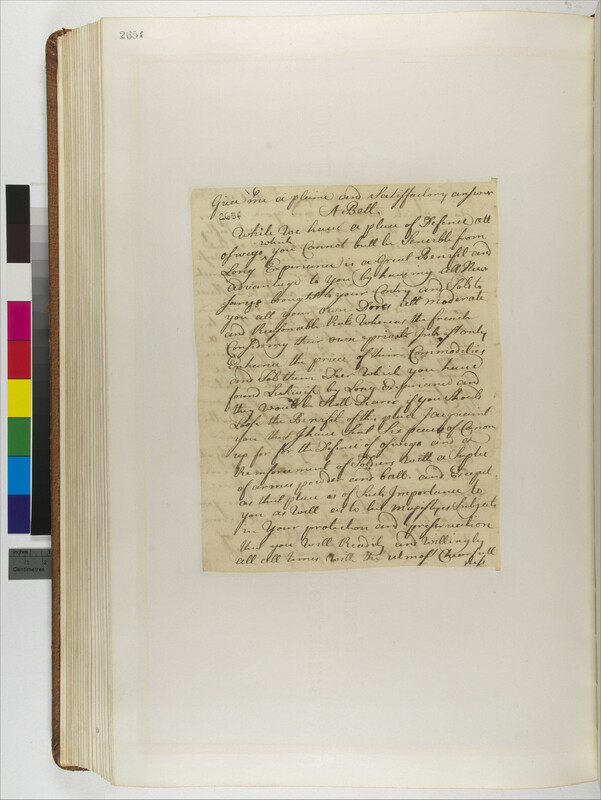 265f
Give me a plaine and Satisffactory answer
265f
A Belt.
While We have a place of Defence att
oswego which You Cannot butt be Sensible from
Long Experience is a Great Benefit and
advantage to You by haveing all New
brought to your Contry and Sold to
you att your own Dores att moderate
and Reasonable Rate Whereas the french
Considering their own private Intrest only
Enhance the price of their Commodities
and Sold them Dear Which you have
found Lickwise by Long Experiance and
they Would be Still Dearer if you Should
Lose the Benefit of this place I acquaint
you that I have Sent Six pieces of Canon
up for the Defence of oswego and a
Reinforcement of Soldiers with a Suplie
of armes powder and ball and Expect
as that place as of Such Importance to
you as Well as to his Majestyes Subjects
in Your protection and preservation
that you will Readily and willingly
att all times with the utmost Chearfull
ness
Inches
Centimetres